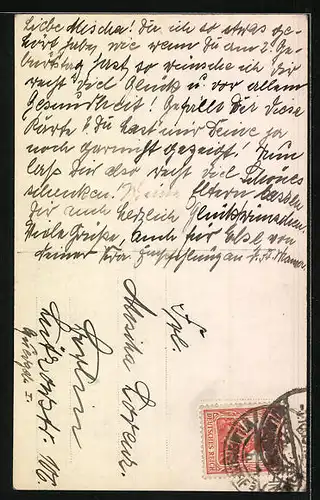 Liebe Mischa! Da ich so etwas ge-
hört habe, wie wenn Du am 2. Ge-
burtstag hast so wünsche ich Dir
recht viel Glück u. vor allem
Gesundheit! Gefällt Dir diese
Karte? Du hast mir Deine ja
noch garnicht gezeigt! Nun
laß Dir also recht viel Schönes
schenken! Meine Eltern lassen
Dir auch herzlich Glückwünschen.
Viele Grüße, auch für Else von
Deiner Empfehlung an Mama.
Frl.
Mischa
Berlin
DEUTSCHES REICH